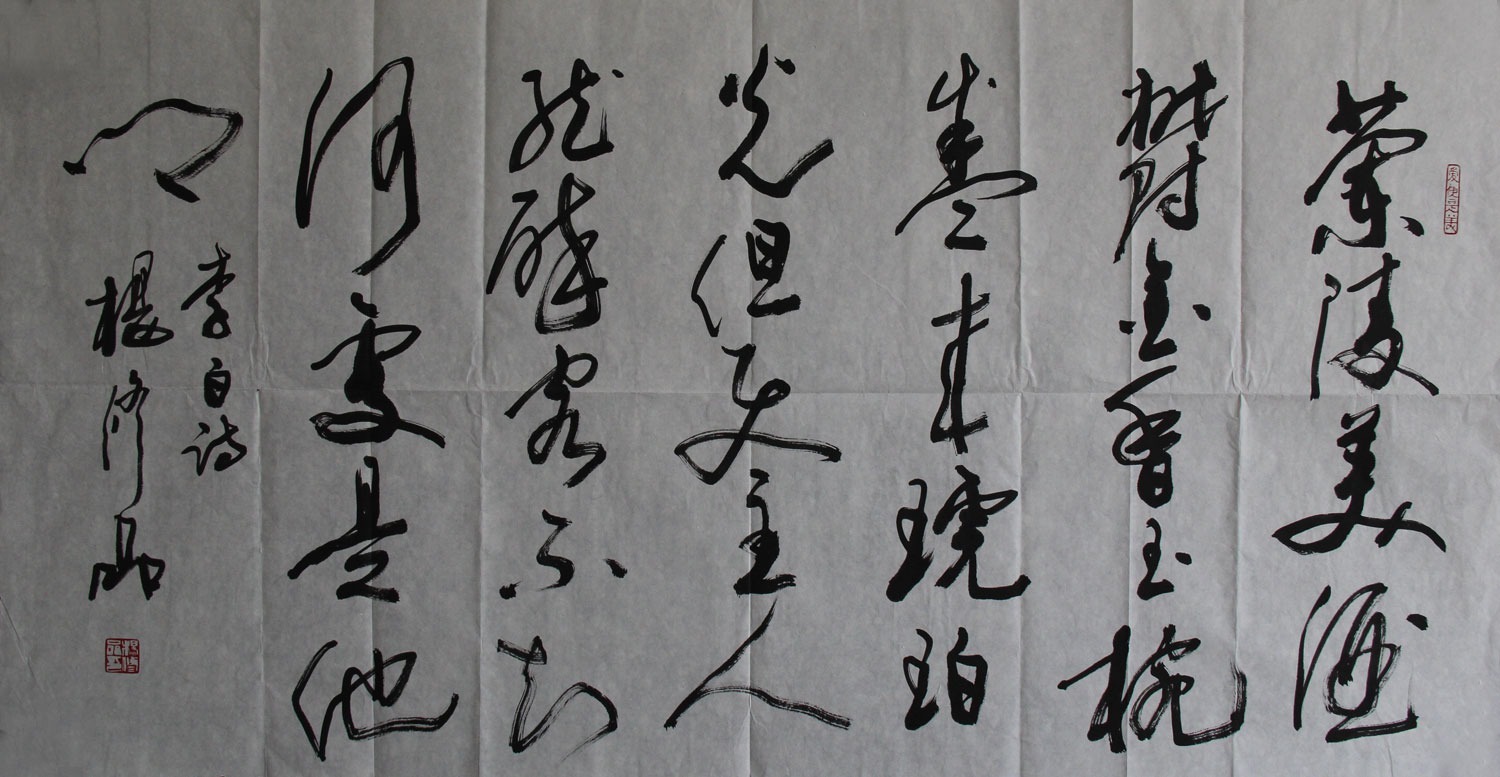 蘭陵美酒
鬱金香玉椀
盛來琥珀
光但使主人
能醉客不知
何處是他
鄉
李白詩
楊修品